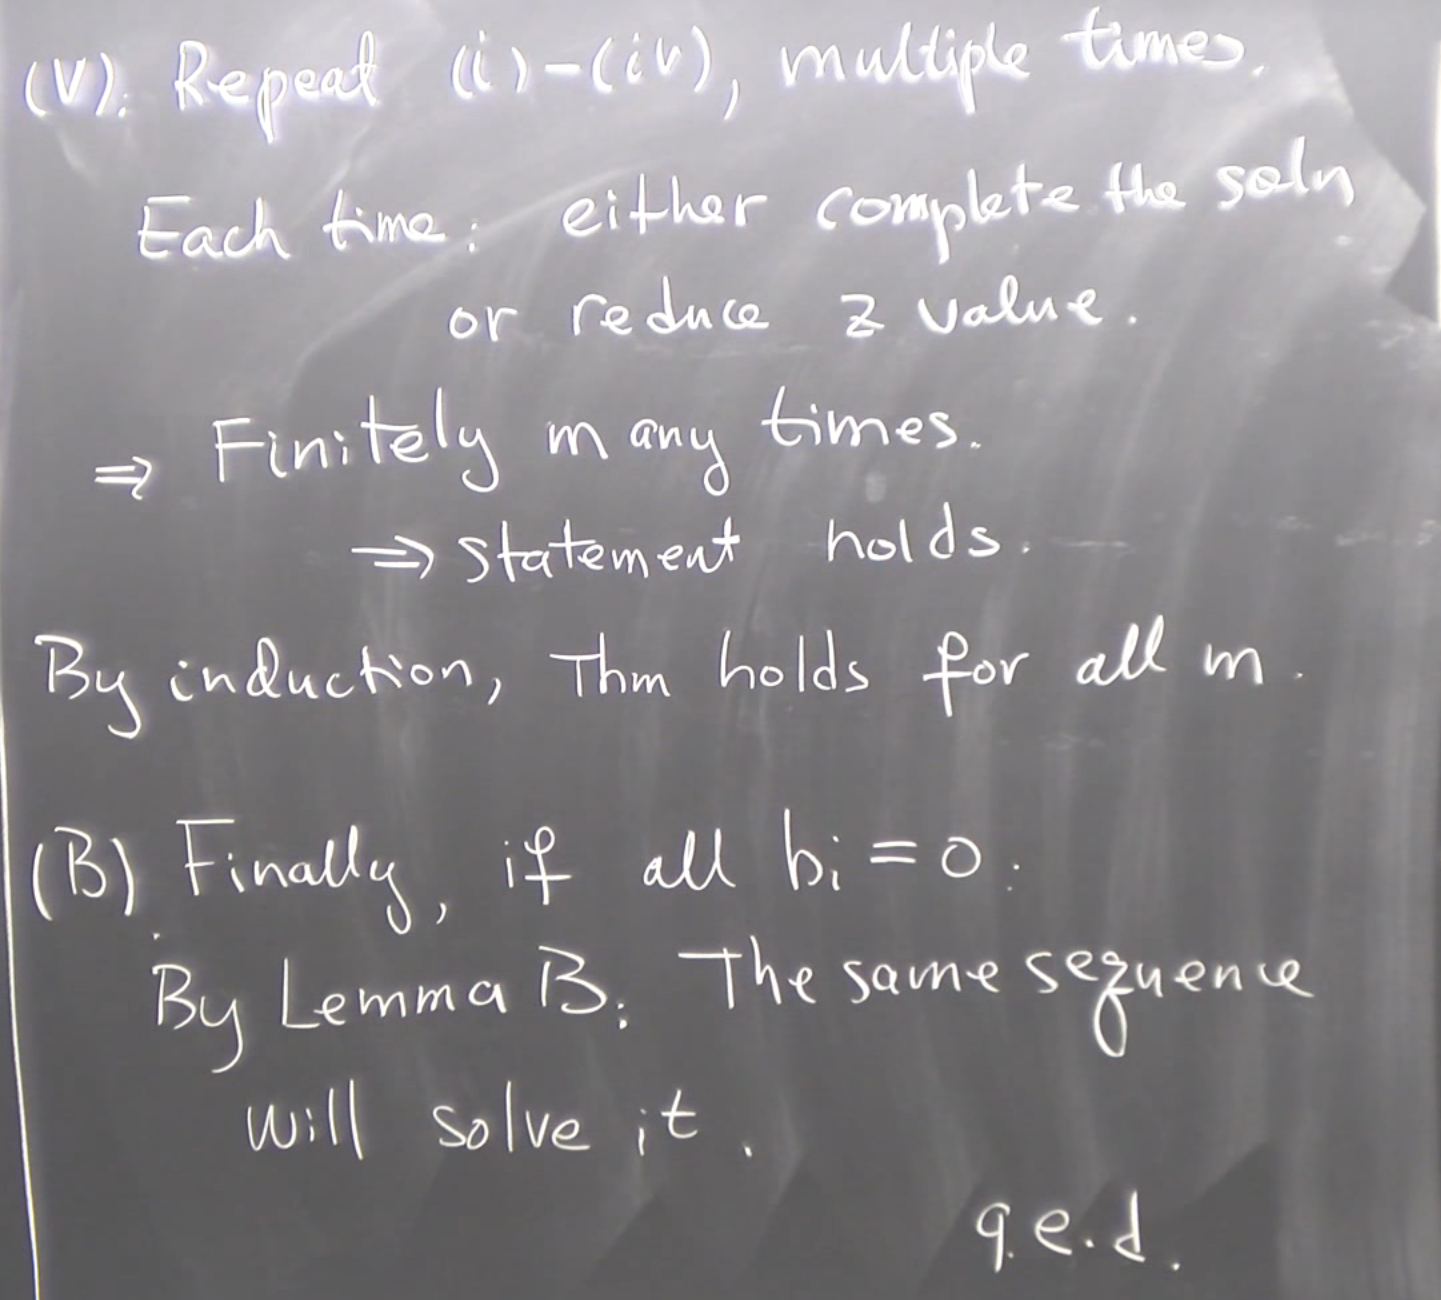 (V): Repeat (i)-(iv), multiple times.
Each time: either complete the soln
or reduce z value.
⇒ Finitely many times.
⇒ statement holds.
By induction, Thm holds for all m.
(B) Finally, if all bi = 0:
By Lemma B: The same sequence
will solve it.
q.e.d.